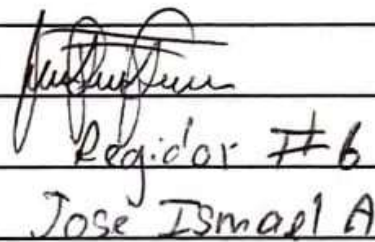 Regidor #6
José Ismael A